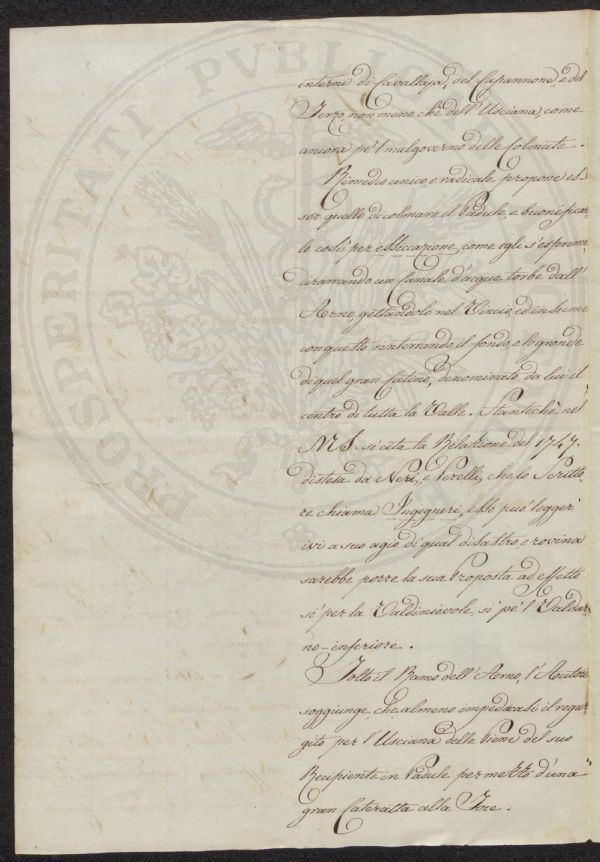 interni di Cavallaja, del Capannone, e del
Terzo non meno che dell'Usciana, come
ancora pe'l malgoverno delle Colmate.
Rimedio unico, e radicale propone es-
ser quello di colmare il Padule, e buonificar
lo così per essiccazione, come egli s'esprime
diramando un Canale d'acque torbe dall'
Arno, gettandolo nel Vincio, ed insieme
con questo rinterrando il fondo, e le gronde
di quel gran Catino, denominato da lui il
centro di tutta la Valle. Stantechè nel
MS. si cita la Relazione del 1747.
distesa da Neri, e Perelli, che lo Scritto-
re chiama Ingegneri, esso può legger
ivi a suo agio di qual disastro e rovina
sarebbe porre la sua Proposta ad effetto
sì per la Valdinievole, sì pe'l Valdar
no-inferiore.
Tolto il Ramo dell'Arno, l'Autore
soggiunge, che almeno impedirasi il regur
gito per l'Usciana delle Piene del suo
Recipiente in Padule per mezzo d'una
gran Cateratta alla Foce.
PROSPERITATI PVBLICAE